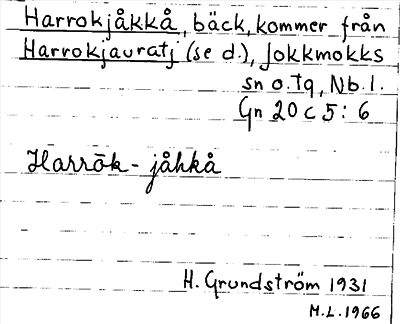 Harrokjåkkå, bäck, kommer från
Harrokjauratj (se d.), Jokkmokks
sn o. tg, Nb. l.
Gn 20 C 5 : 6
Harrōk - jåhkå
H. Grundström 1931
M.L. 1966